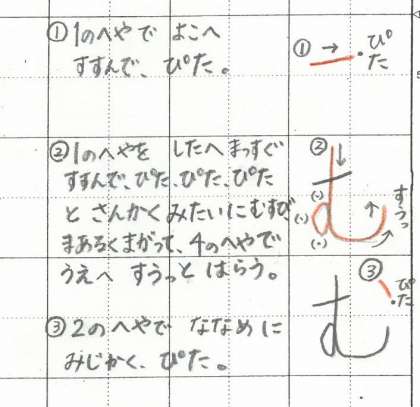 ①1のへやで よこへ
すすんで、ぴた。
① → ぴた
②1のへやを したへ まっすぐ
すすんで、ぴた、ぴた、ぴた
と さんかく みたいに むすび
まあろく まがって、4のへやで
うえへ すうっと はらう。
② すうっ
む
③2のへやで ななめに
みじかく、ぴた。
③ ぴた
む